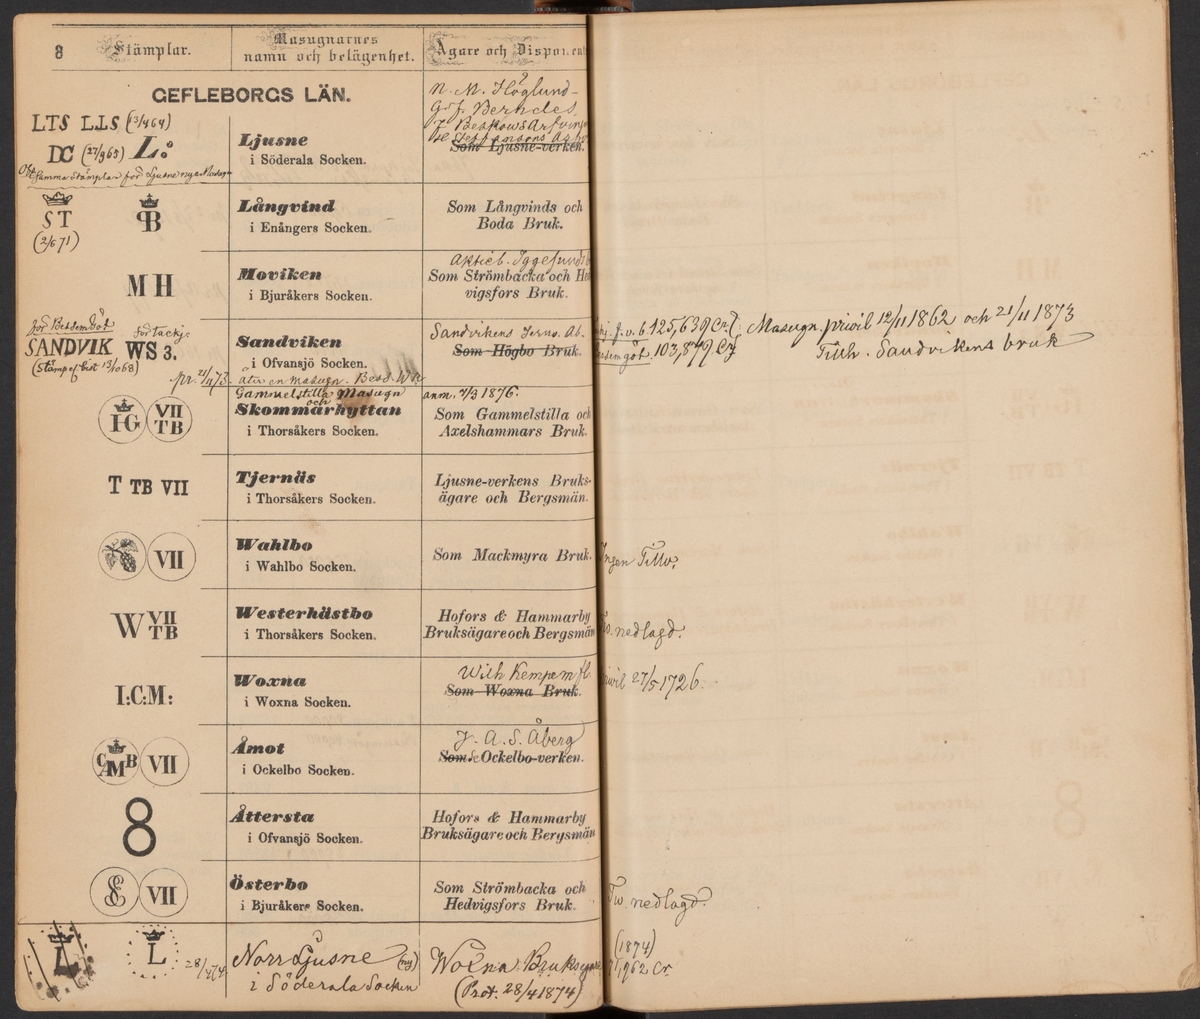 8 Stämplar. Masugnarnes namn och belägenhet. Ägare och Disponent
GEFLEBORGS LÄN.
N. M. Höglund
J. Beskows Arfvin
LTS LLS (13/4 64)
DC (27/9 65) L:
samma stämplar för Ljusne nya Masugn
Ljusne
i Söderala Socken.
Som Ljusne-verken.
ST
(2/6 71)
PB
Långvind
i Enångers Socken.
Som Långvinds och
Boda Bruk.
MH
Moviken
i Bjuråkers Socken.
Aktieb. Iggesunds
Som Strömbacka och He
vigsfors Bruk.
för Bessemgöt för tackj:
SANDVIK WS 3.
Sandviken
i Ofvansjö Socken.
Sandvikens Jerns. Ab.
Som Högbo Bruk.
125,639 Ctr Masugn. privil 12/11 1862 och 21/11 1873
103,879 Ctr Tillh. Sandvikens bruk
pr. 21/11 73. åter en masugn.
Gammelstilla Masugn anm. 7/3 1876.
och
IG VII TB
Skommarhyttan
i Thorsåkers Socken.
Som Gammelstilla och
Axelshammars Bruk.
T TB VII
Tjernäs
i Thorsåkers Socken.
Ljusne-verkens Bruks-
ägare och Bergsmän.
VII
Wahlbo
i Wahlbo Socken.
Som Mackmyra Bruk.
Ingen Tillv.
W VII TB
Westerhästbo
i Thorsåkers Socken.
Hofors & Hammarby
Bruksägare och Bergsmän
nedlagd.
I:C:M:
Woxna
i Woxna Socken.
Wilh Kempe m fl.
Som Woxna Bruk.
privil 27/5 1726.
CAMB VII
Åmot
i Ockelbo Socken.
J. A. S. Åberg
Som Ockelbo-verken.
8
Åttersta
i Ofvansjö Socken.
Hofors & Hammarby
Bruksägare och Bergsmän
E VII
Österbo
i Bjuråkers Socken.
Som Strömbacka och
Hedvigsfors Bruk.
Tv. nedlagd.
L L 28/4 74
Norrljusne (ny)
i Söderala Socken
Woxna Bruksegare
(Prot. 28/4 1874)
(1874)
71,962 Ctr